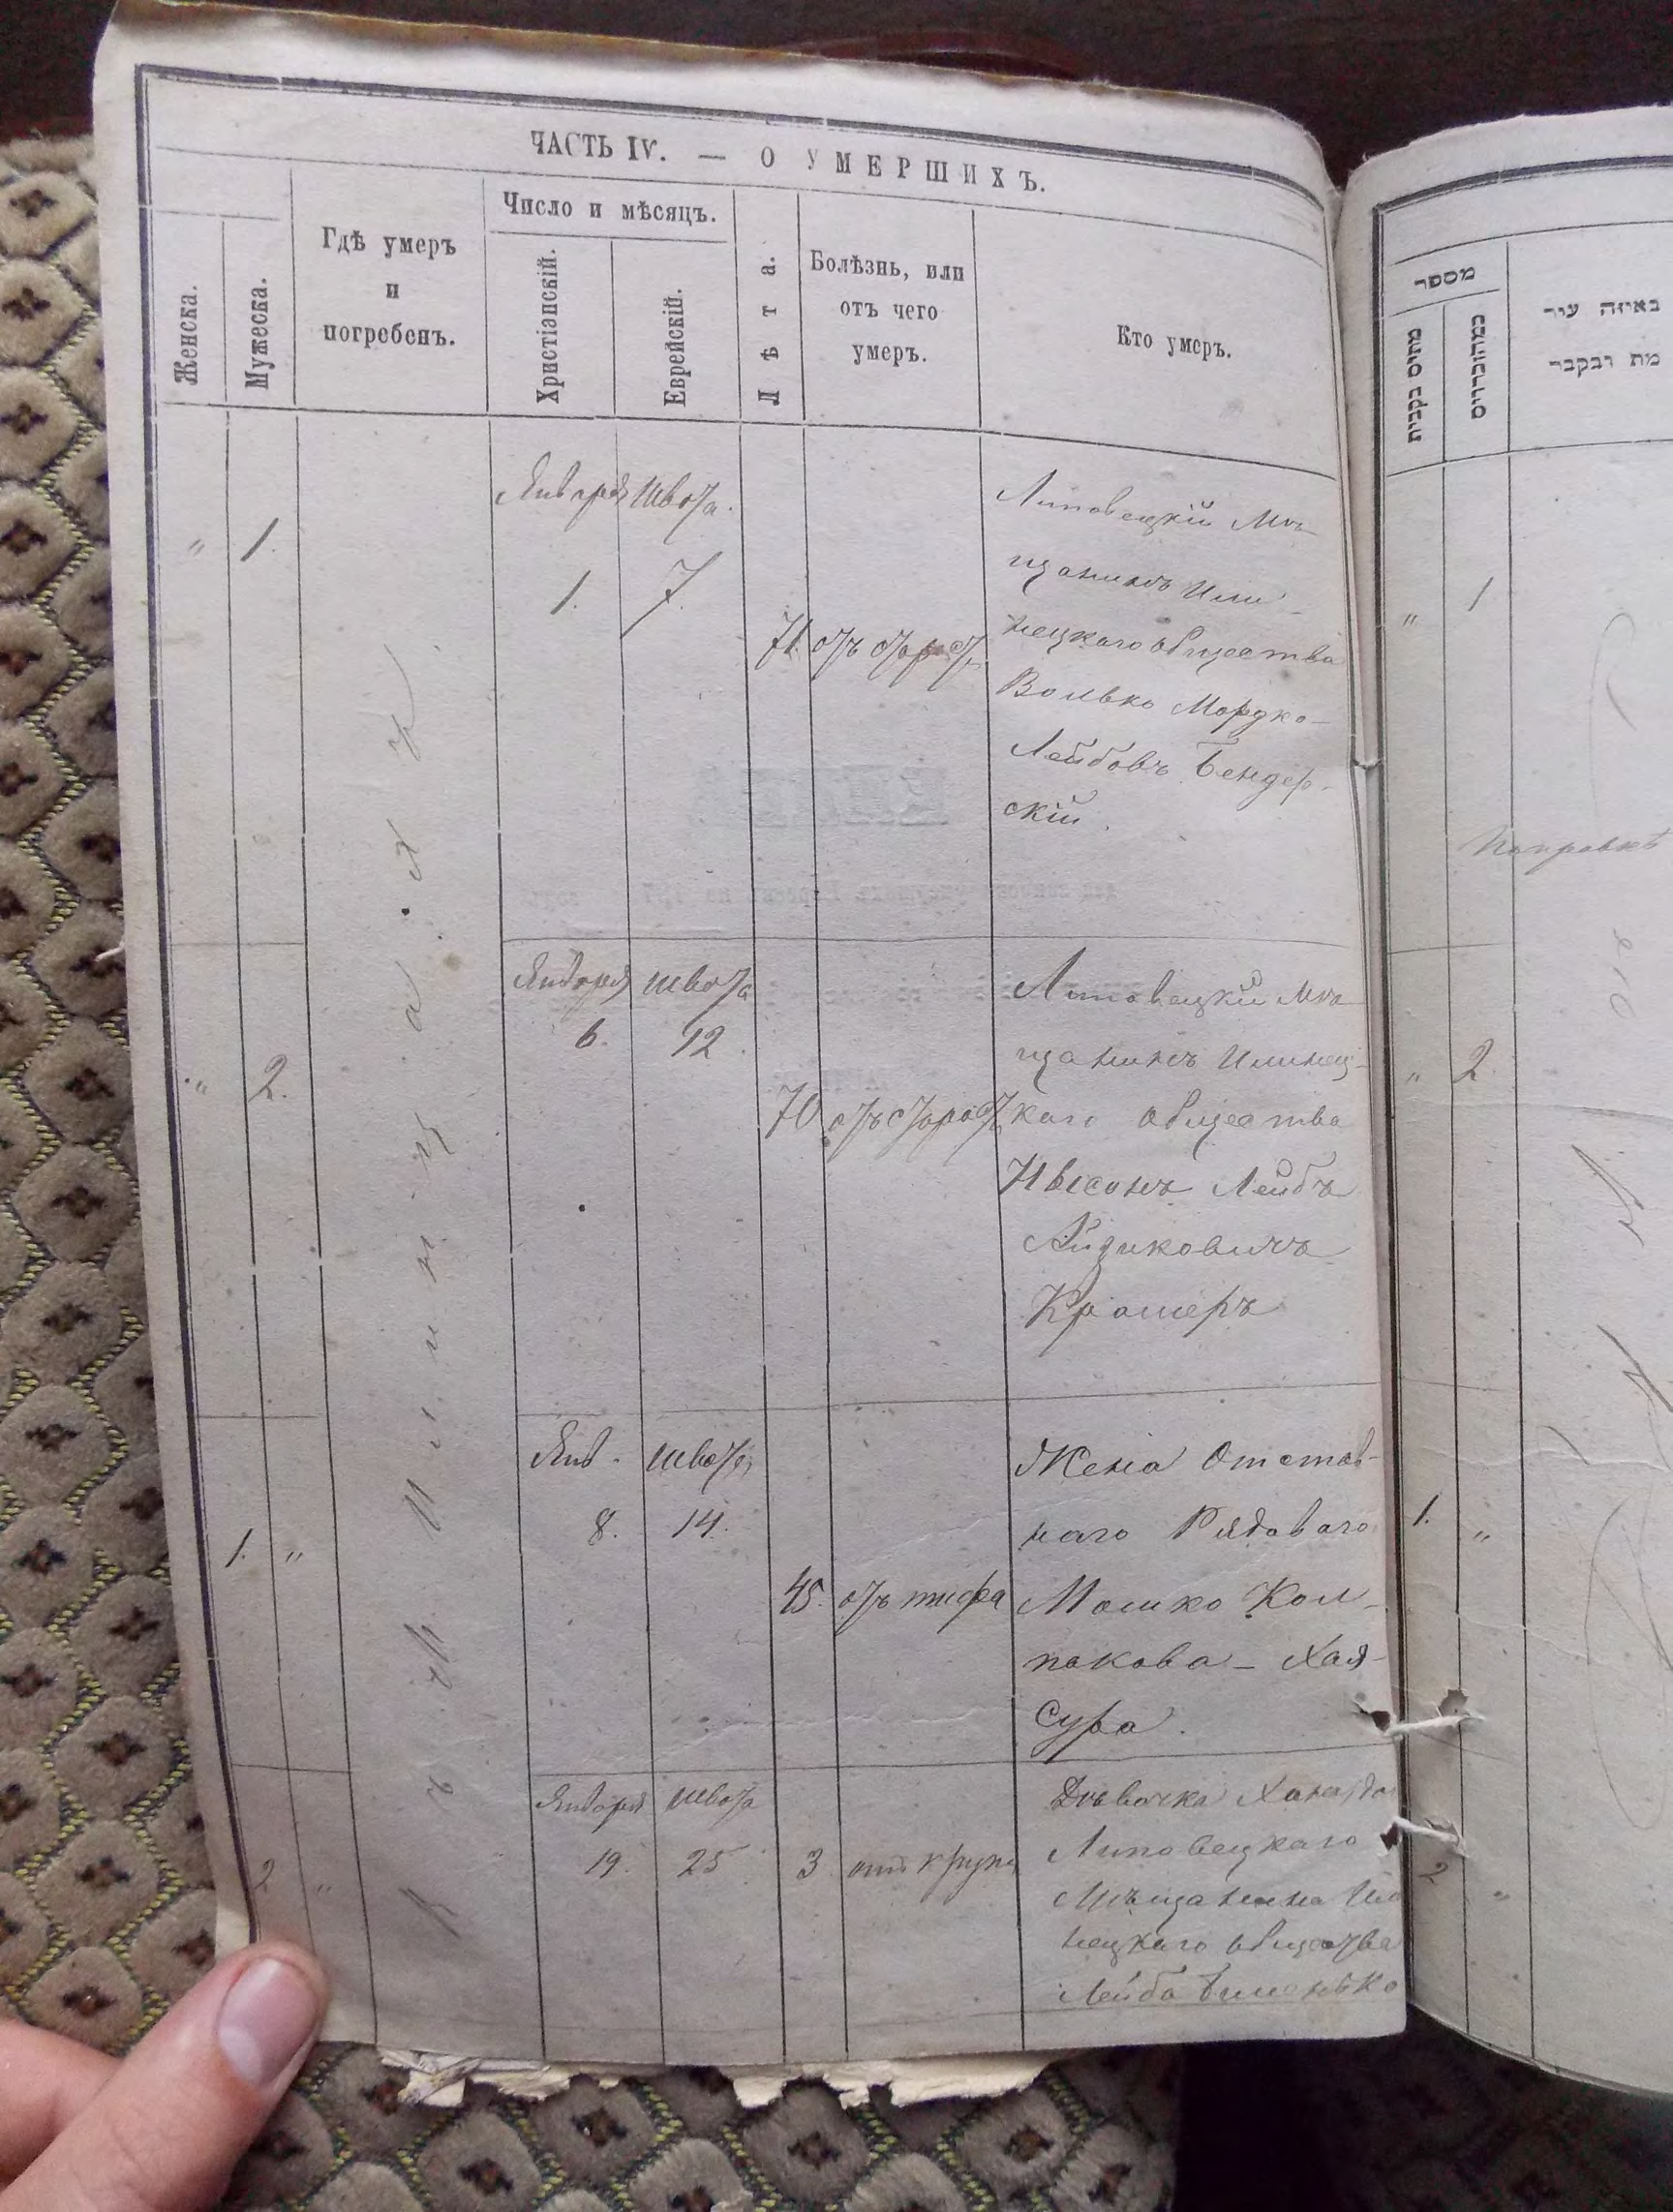 ЧАСТЬ IV. — О УМЕРШИХЪ.
Женска.
Мужеска.
Гдѣ умеръ
и
погребенъ.
Число и мѣсяцъ.
Христіанскій.
Еврейскій.
Лѣта.
Болѣзнь, или
отъ чего
умеръ.
Кто умеръ.
въ Илинцахъ
" 1.
Января Швота.
1. 7.
71. отъ старост.
Липовецкій Мѣ-
щанинъ Или-
нецкаго общества
Волько Мордко-
Лейбовъ Бендер-
скій.
" 2.
Января Швота
6. 12.
70 отъ старост.
Липовецкій Мѣ-
щанинъ Илинец-
каго общества
Нысонъ Лейбъ
Айзиковичъ
Крамеръ
1. "
Янв. Швота
8. 14.
45. отъ тифа
Жена Отстав-
наго Рядоваго
Мошко Кол-
пакова - Хая-
Сура.
2 "
Января Швота
19. 25
3 отъ крупа
Дѣвочка Хана
Липовецкаго
Мѣщанина Или
нецкаго общества
Лейба
מספר
באיזה עיר
מת ונקבר
" 1
" 2
1. "
2 "